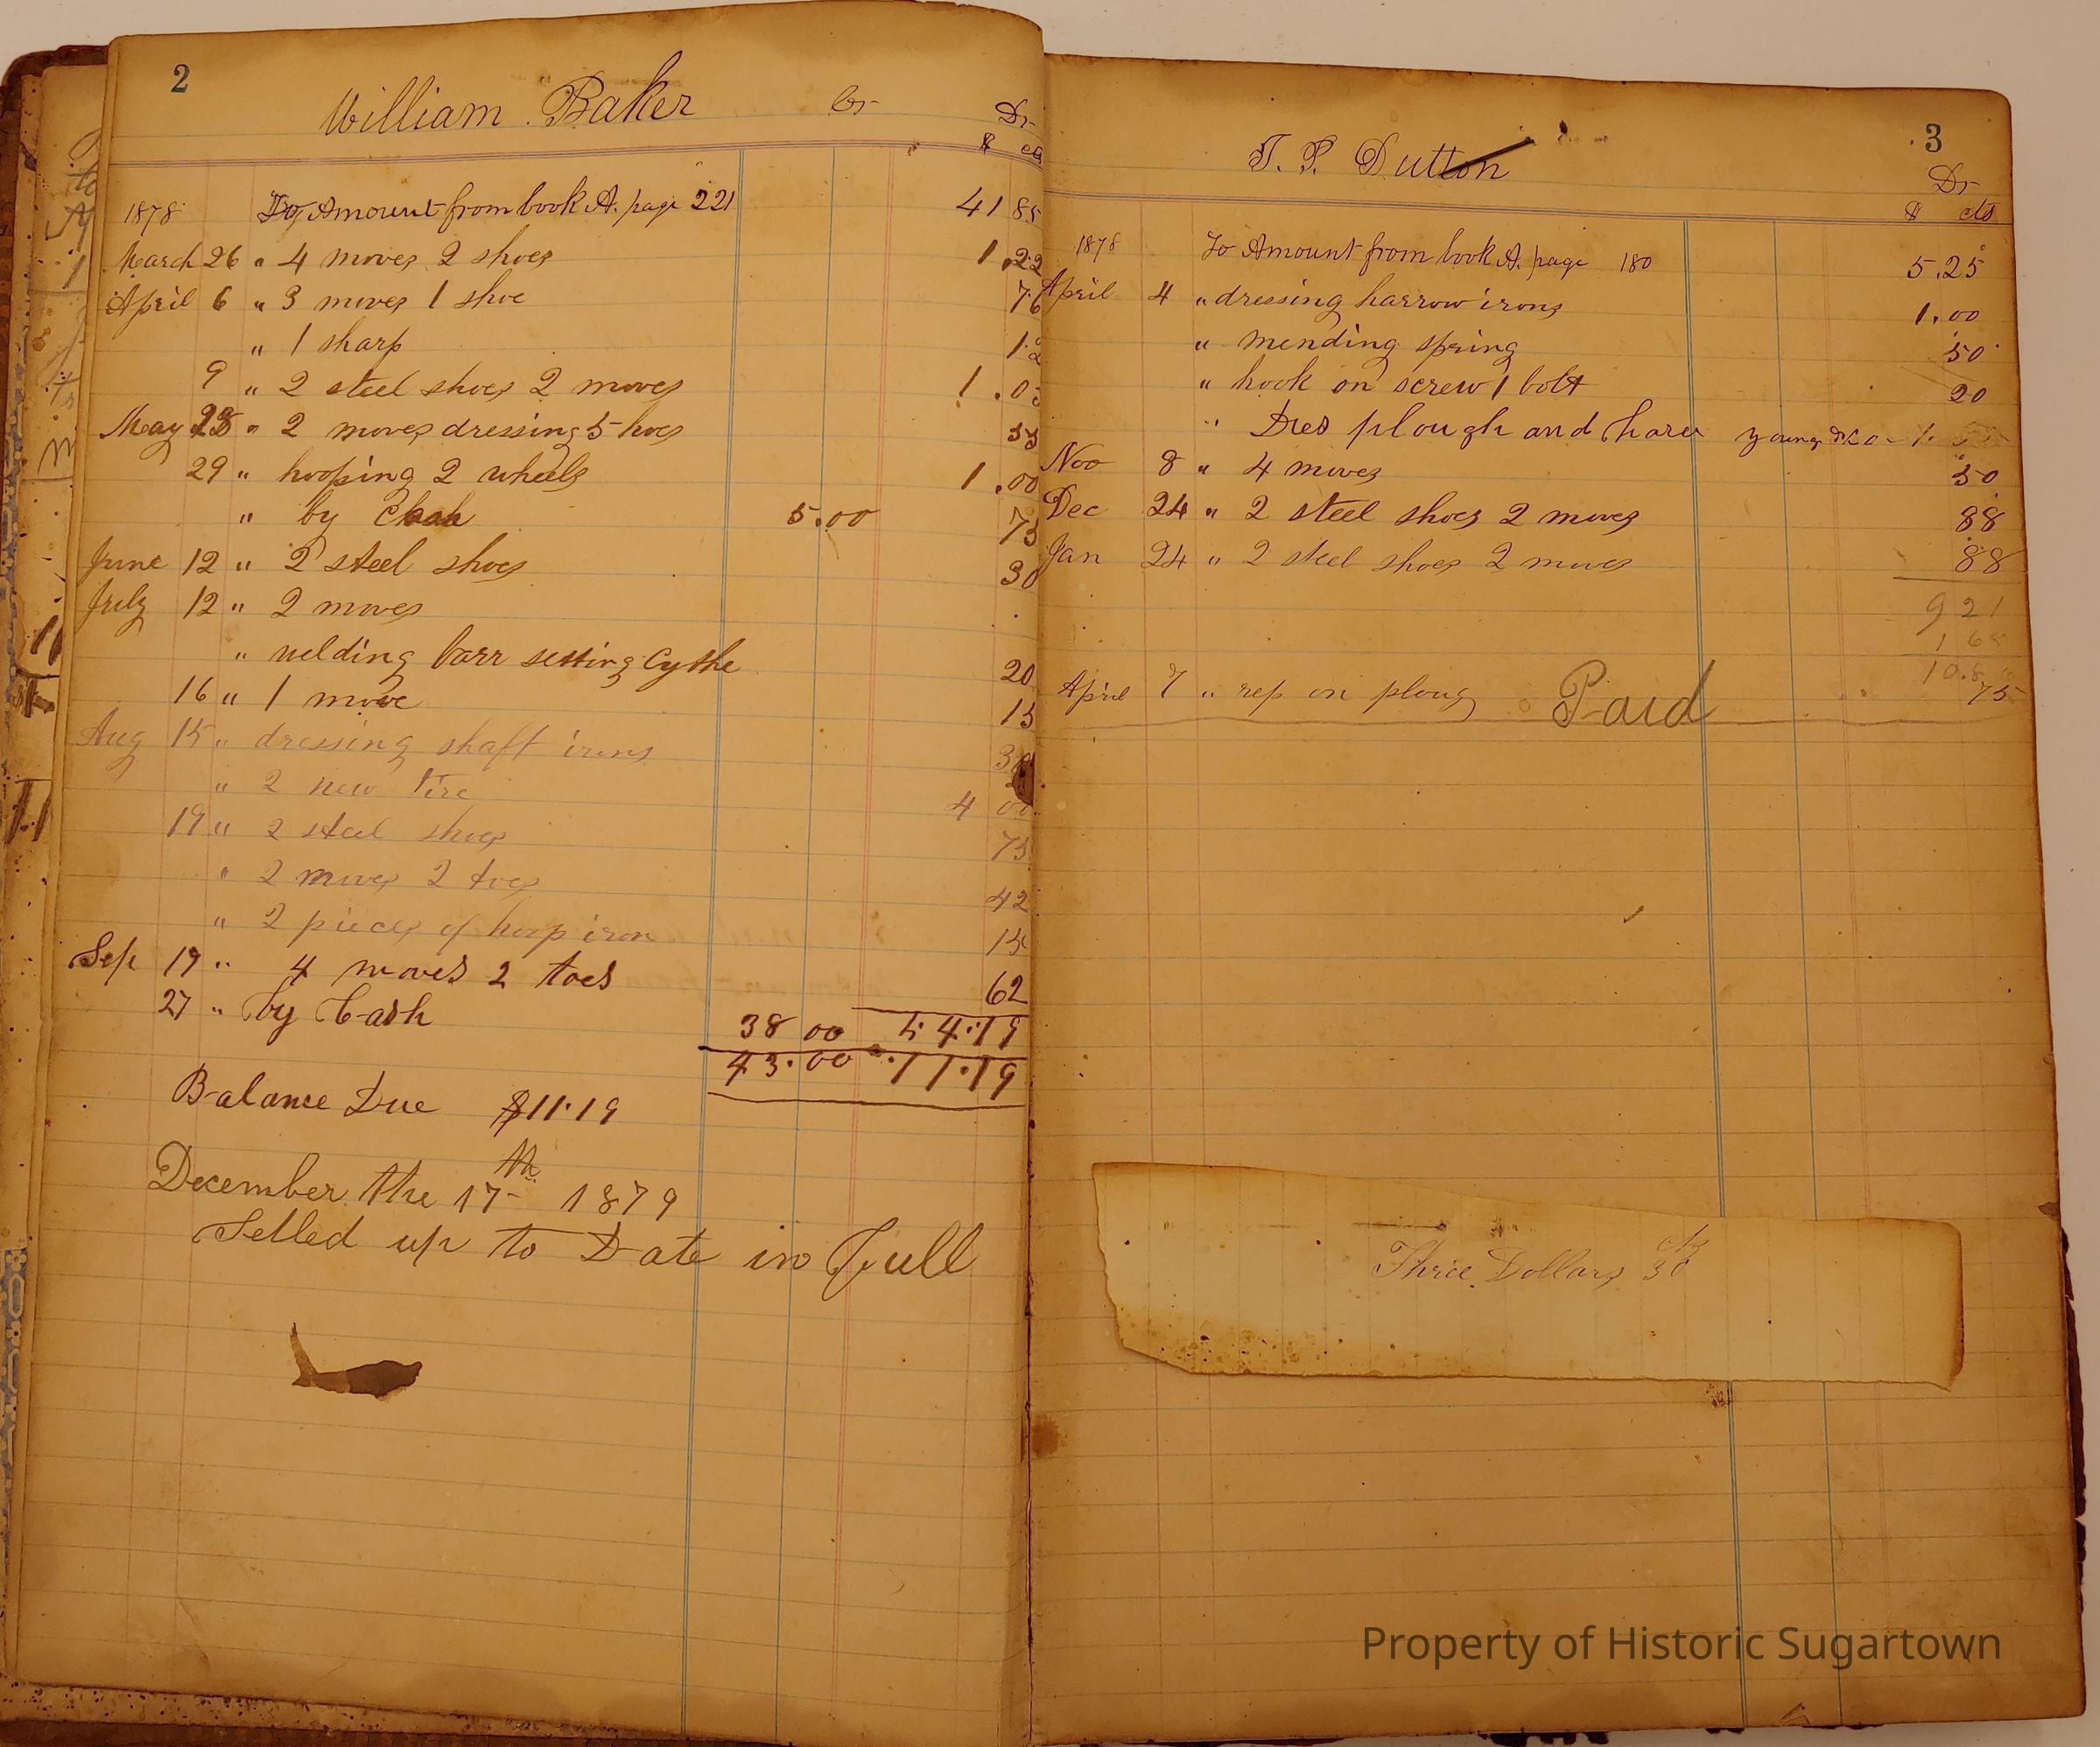 2
William Baker Cr Dr
$ cts
1878 To Amount from book A. page 221 41 85
March 26 " 4 moves 2 shoes 1.22
April 6 " 3 moves 1 shoe 76
" 1 sharp 12
9 " 2 steel shoes 2 moves 1.05
May " 2 moves dressing 5 hoes 55
29 " hooping 2 wheels 1.00
" by Cash 5.00 75
June 12 " 2 steel shoes 30
July 12 " 2 moves
" welding barr setting Cythe 20
16 " 1 move 15
Aug 15 " dressing shaft irons
" 2 new tire 4 00
19 " 2 steel shoes 75
" 2 moves 2 toes 42
" 2 pieces of hoop iron 15
Sep 19 " 4 moves 2 toes 62
27 " by Cash 38 00 54.19
43.00 11.19
Balance Due $11.19
December the 17th 1879
Setled up to Date in Full
3
T. P. Dutton
Dr
$ cts
1878 To Amount from book A. page 180 5.25
April 4 " dressing harrow irons 1.00
" mending spring 50
" hook on screw 1 bolt 20
" plough and 1.
Nov 8 " 4 moves 50
Dec 24 " 2 steel shoes 2 moves 88
Jan 24 " 2 steel shoes 2 moves 88
9 21
1 6
10.8
April 7 " rep on ploug Paid 75
Three Dollars 30 cts
Property of Historic Sugartown